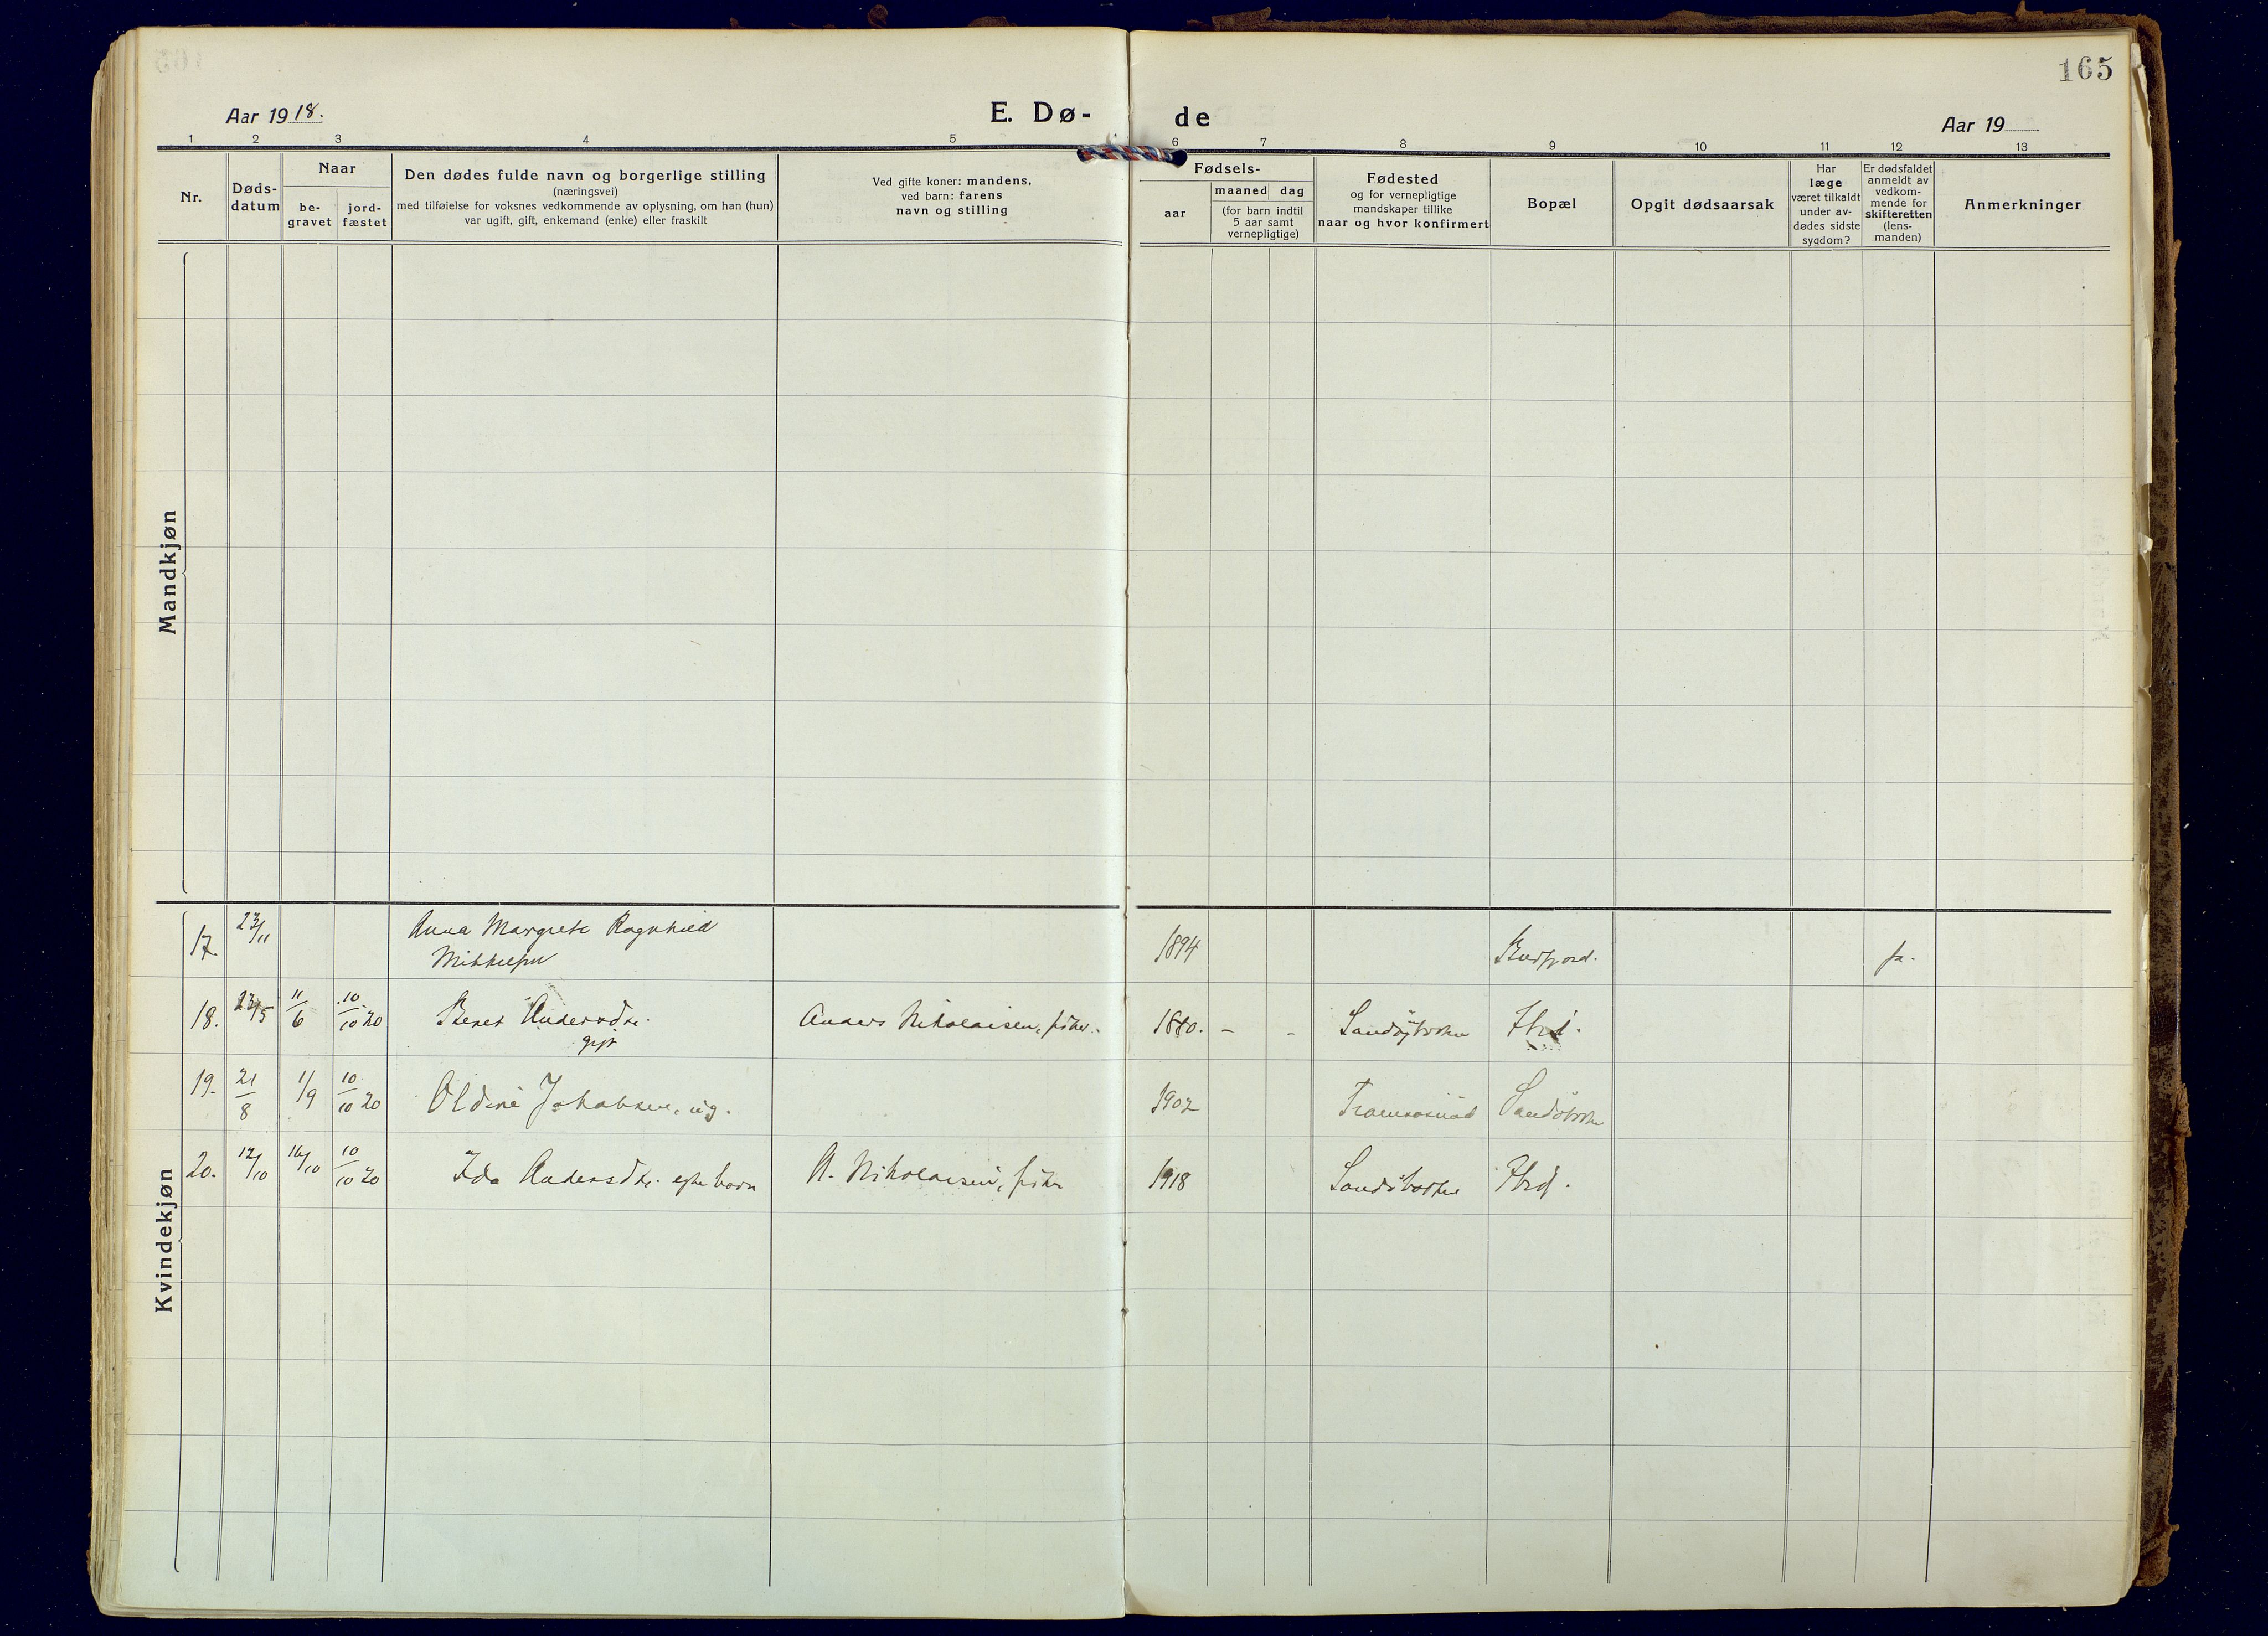 165
Aar 1918.
E. Dø-de
Aar 19
1 2 3 4 5 6 7 8 9 10 11 12 13
Nr.
Døds-
datum
Naar
be-
gravet
jord-
fæstet
Den dødes fulde navn og borgerlige stilling
(næringsvei)
med tilføielse for voksnes vedkommende av oplysning, om han (hun)
var ugift, gift, enkemand (enke) eller fraskilt
Ved gifte koner: mandens,
ved barn: farens
navn og stilling
Fødsels-
aar
maaned dag
(for barn indtil
5 aar samt
vernepligtige)
Fødested
og for vernepligtige
mandskaper tillike
naar og hvor konfirmert
Bopæl
Opgit dødsaarsak
Har
læge
været tilkaldt
under av-
dødes sidste
sygdom?
Er dødsfaldet
anmeldt av
vedkom-
mende for
skifteretten
(lens-
manden)
Anmerkninger
Mandkjøn
Kvindekjøn
17. 23/11 Anna Margrete Ragnhild 1894 ja.
Mikkelsen
18. 23/5 11/6 10/10 20 Beret Andersdtr. Anders Nikolaisen, fisker. - - Ibid.
gift
19. 21/8 1/9 10/10 20 Oldine Jakobsen, ug. 1902 Tromsøsund
20. 12/10 16/10 10/10 20 Ida Andersdtr. egte barn A. Nikolaisen, fisker 1918 Ibid.